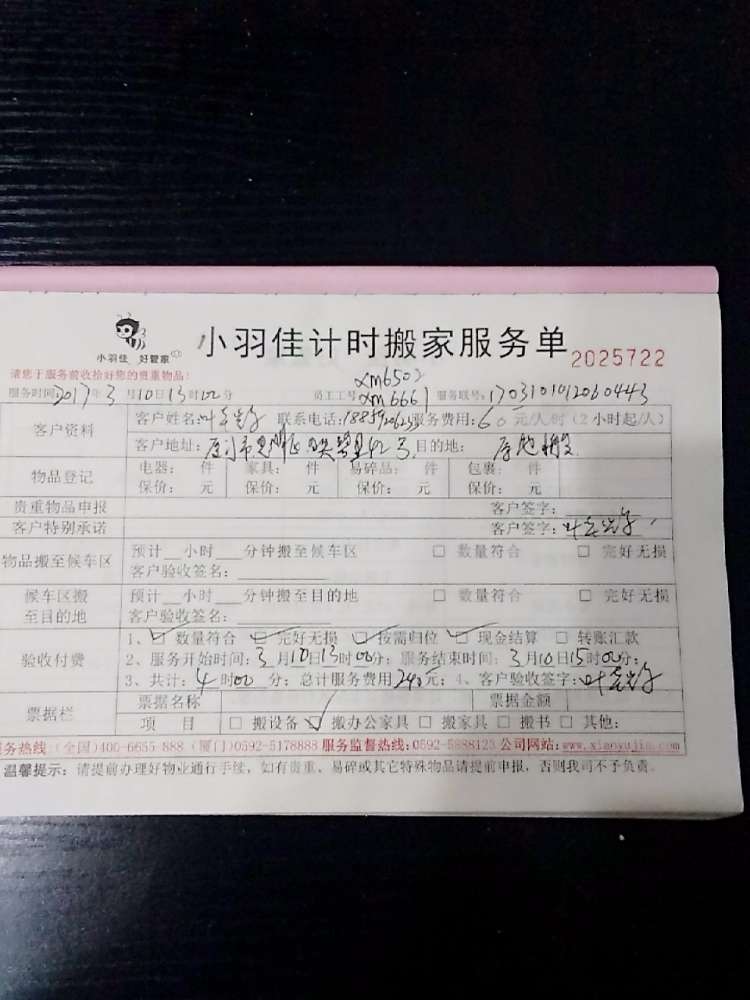 小羽佳 好管家
小羽佳计时搬家服务单 2025722
请您于服务前收拾好您的贵重物品！
xm6502
服务时间2017年3月10日13时00分 员工工号xm6661 服务联号：1703101012060443
客户资料 客户姓名： 联系电话： 服务费用：60元/人/时（2小时起/人）
客户地址：厦门市思明区 42号 目的地：
物品登记 电器： 件 家具： 件 易碎品： 件 包裹： 件
保价： 元 保价： 元 保价： 元 保价： 元
贵重物品申报 客户签字：
客户特别承诺 客户签字：
物品搬至候车区 预计__小时___分钟搬至候车区 □ 数量符合 □ 完好无损
客户验收签名：
候车区搬至目的地 预计__小时___分钟搬至目的地 □ 数量符合 □ 完好无损
客户验收签名：
验收付费 1、☑ 数量符合 ☑ 完好无损 ☑ 按需归位 ☑ 现金结算 □ 转账汇款
2、服务开始时间：3月10日13时00分；服务结束时间：3月10日15时00分；
3、共计：4时00分；总计服务费用240元；4、客户验收签字：
票据栏 票据名称 票据金额
项 目 □ 搬设备 ☑ 搬办公家具 □ 搬家具 □ 搬书 □ 其他：
服务热线：(全国)400-6655 888 (厦门)0592-5178888 服务监督热线：0592-5888123 公司网站：www.xiaoyujia.com
温馨提示：请提前办理好物业通行手续，如有贵重、易碎或其它特殊物品请提前申报，否则我司不予负责。